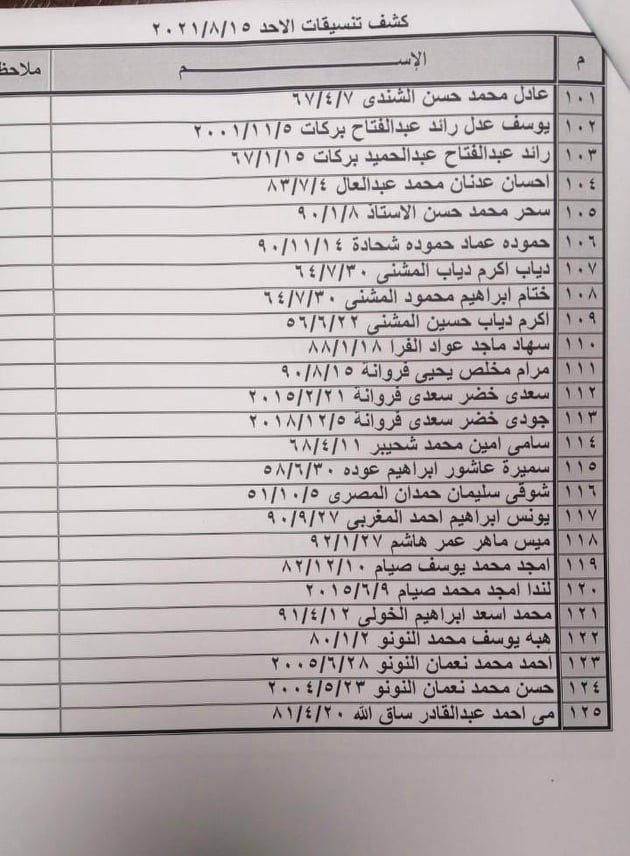 كشف تنسيقات الاحد ٢٠٢١/٨/١٥
م الإســـــــــم ملاحظ
١٠١ عادل محمد حسن الشندى ٦٧/٤/٧
١٠٢ يوسف عدل رائد عبدالفتاح بركات ٢٠٠١/١١/٥
١٠٣ رائد عبدالفتاح عبدالحميد بركات ٦٧/١/١٥
١٠٤ احسان عدنان محمد عبدالعال ٨٣/٧/٤
١٠٥ سحر محمد حسن الاستاذ ٩٠/١/٨
١٠٦ حموده عماد حموده شحادة ٩٠/١١/١٤
١٠٧ دياب اكرم دياب المشنى ٦٤/٧/٣٠
١٠٨ ختام ابراهيم محمود المشنى ٦٤/٧/٣٠
١٠٩ اكرم دياب حسين المشنى ٥٦/٦/٢٢
١١٠ سهاد ماجد عواد الفرا ٨٨/١/١٨
١١١ مرام مخلص يحيى فروانة ٩٠/٨/١٥
١١٢ سعدى خضر سعدى فروانة ٢٠١٥/٢/٢١
١١٣ جودى خضر سعدى فروانة ٢٠١٨/١٢/٥
١١٤ سامى امين محمد شحيبر ٦٨/٤/١١
١١٥ سميرة عاشور ابراهيم عوده ٥٨/٦/٣٠
١١٦ شوقى سليمان حمدان المصرى ٥١/١٠/٥
١١٧ يونس ابراهيم احمد المغربى ٩٠/٩/٢٧
١١٨ ميس ماهر عمر هاشم ٩٢/١/٢٧
١١٩ امجد محمد يوسف صيام ٨٢/١٢/١٠
١٢٠ لندا امجد محمد صيام ٢٠١٥/٦/٩
١٢١ محمد اسعد ابراهيم الخولى ٩١/٤/١٢
١٢٢ هبه يوسف محمد النونو ٨٠/١/٢
١٢٣ احمد محمد نعمان النونو ٢٠٠٥/٦/٢٨
١٢٤ حسن محمد نعمان النونو ٢٠٠٤/٥/٢٣
١٢٥ مى احمد عبدالقادر ساق الله ٨١/٤/٢٠